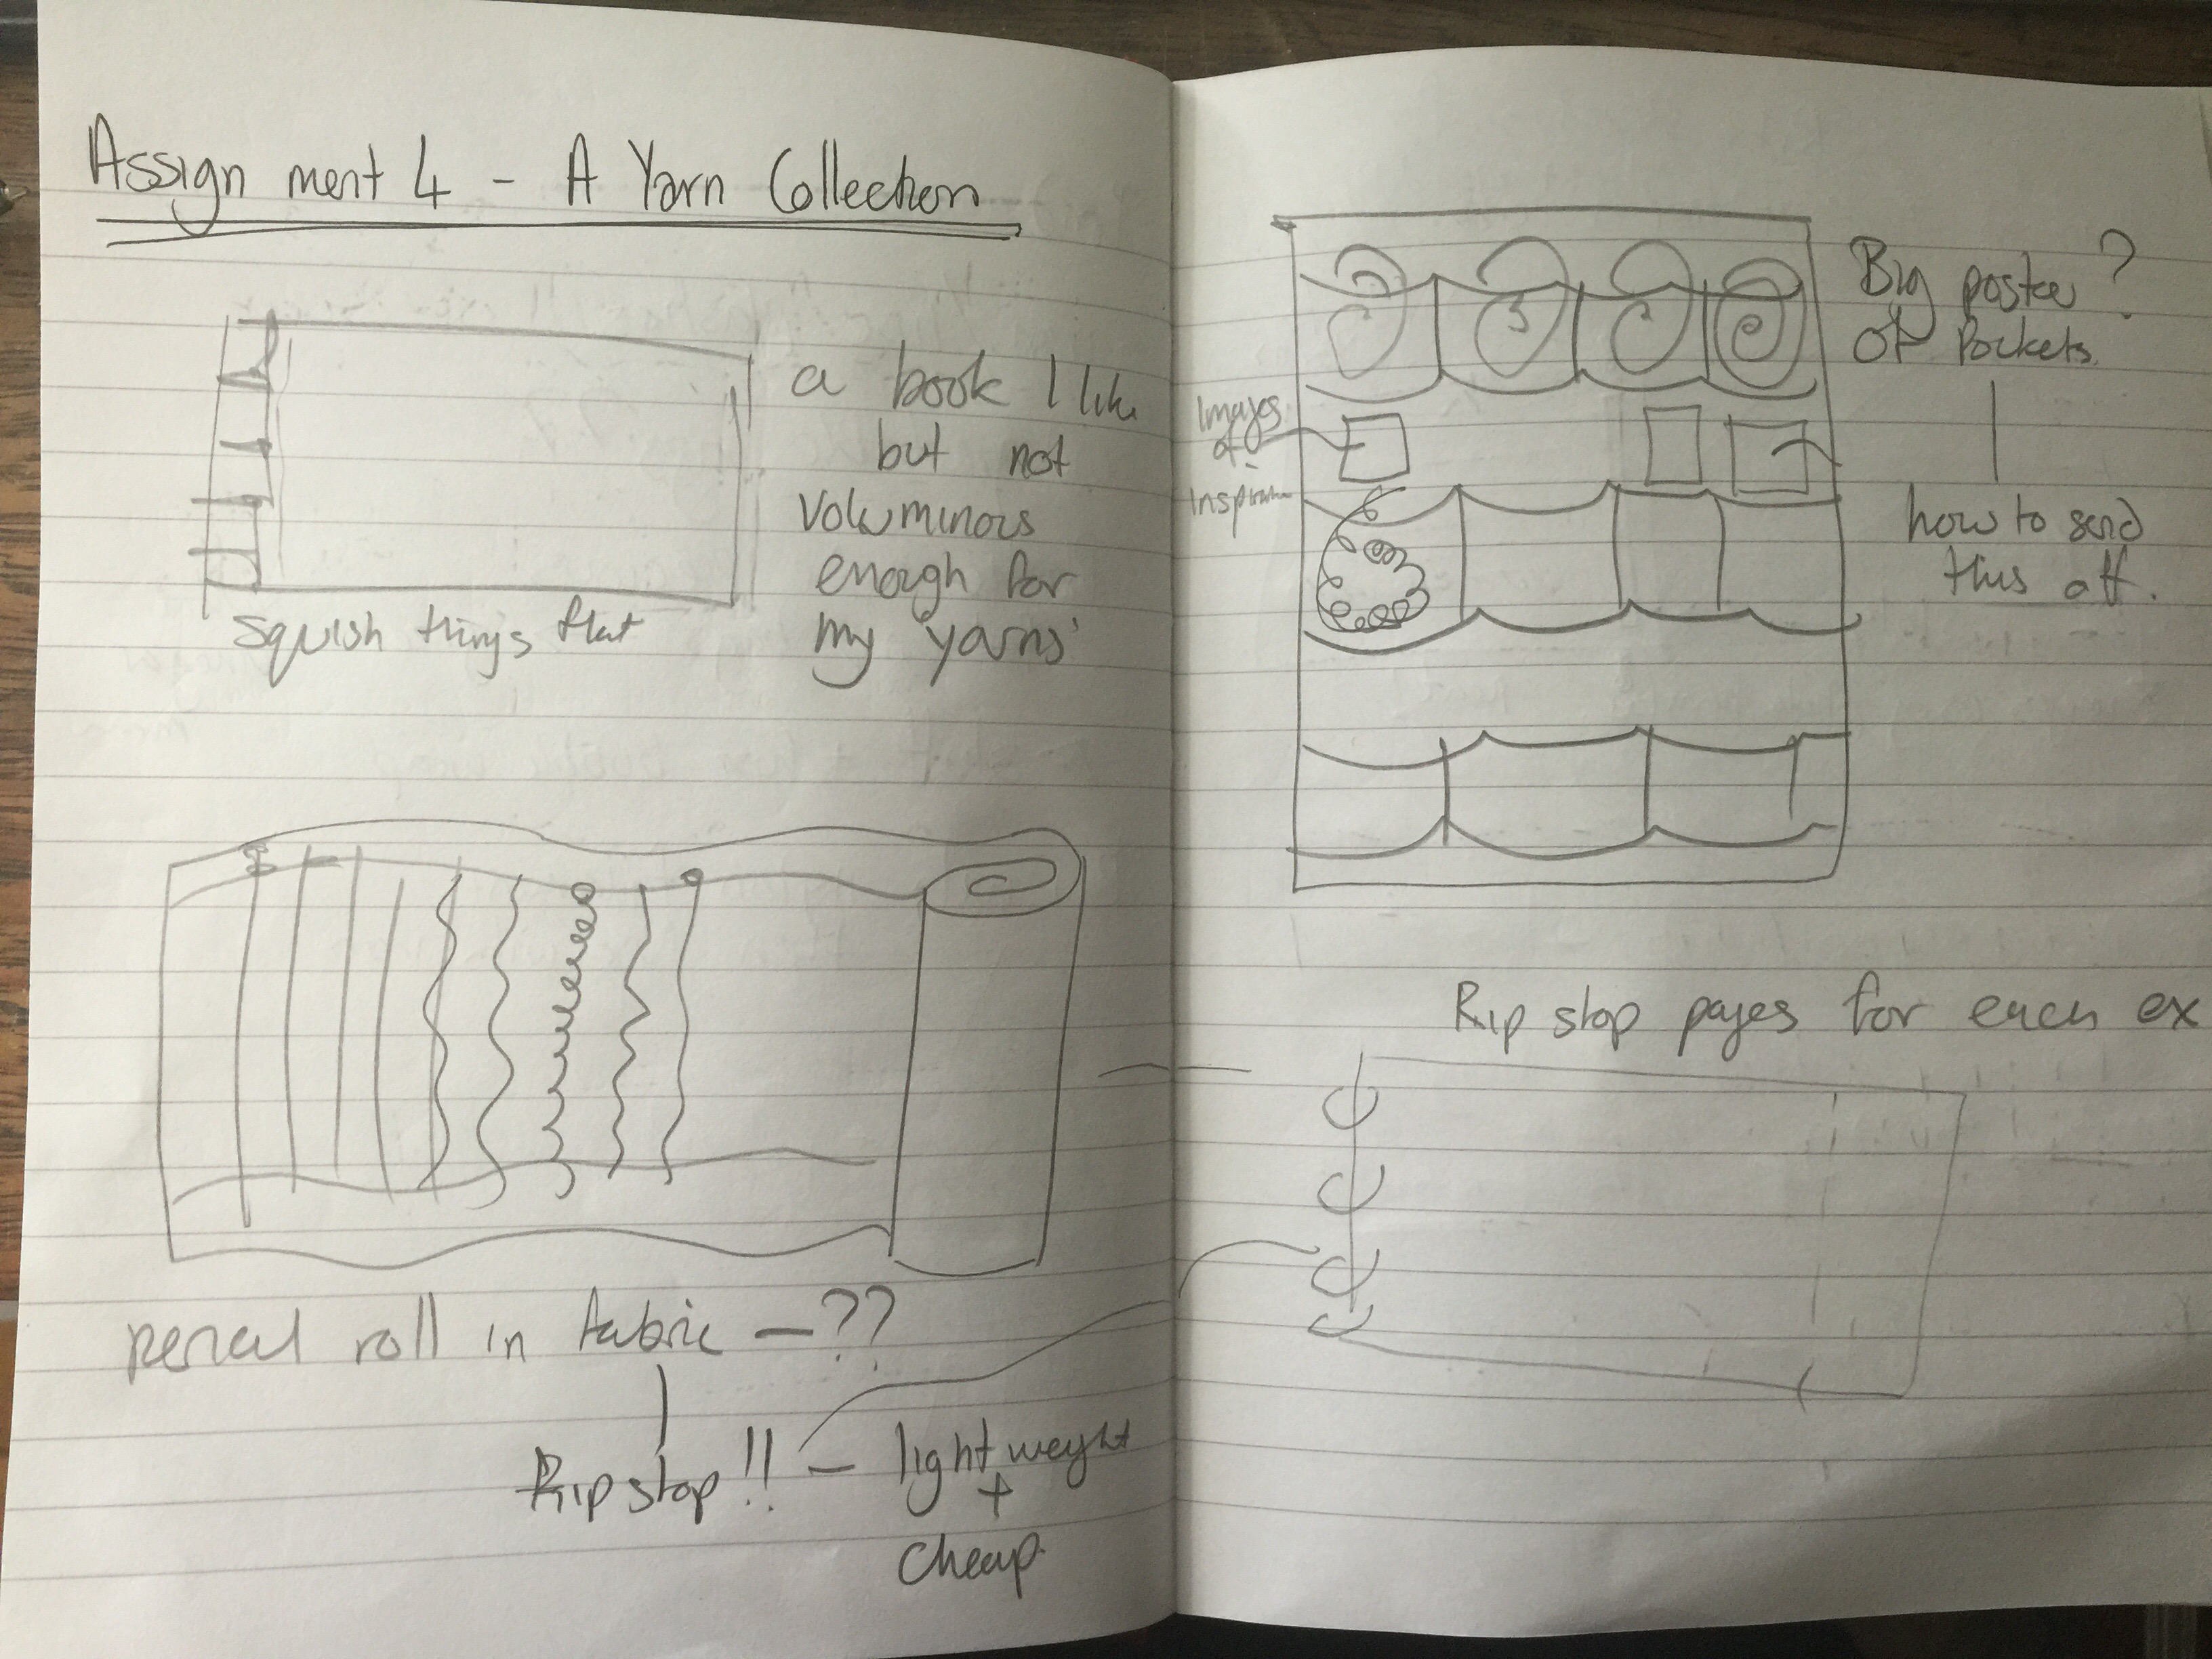 Assignment 4 - A Yarn Collection
a book I like
but not
voluminous
enough for
my yarns'
squish things flat
pencil roll in fabric - ??
Ripstop!! - lightweight
+
cheap.
Big poster?
of Pockets.
how to send
this off.
Images
of
Inspiration
Rip stop pages for each ex